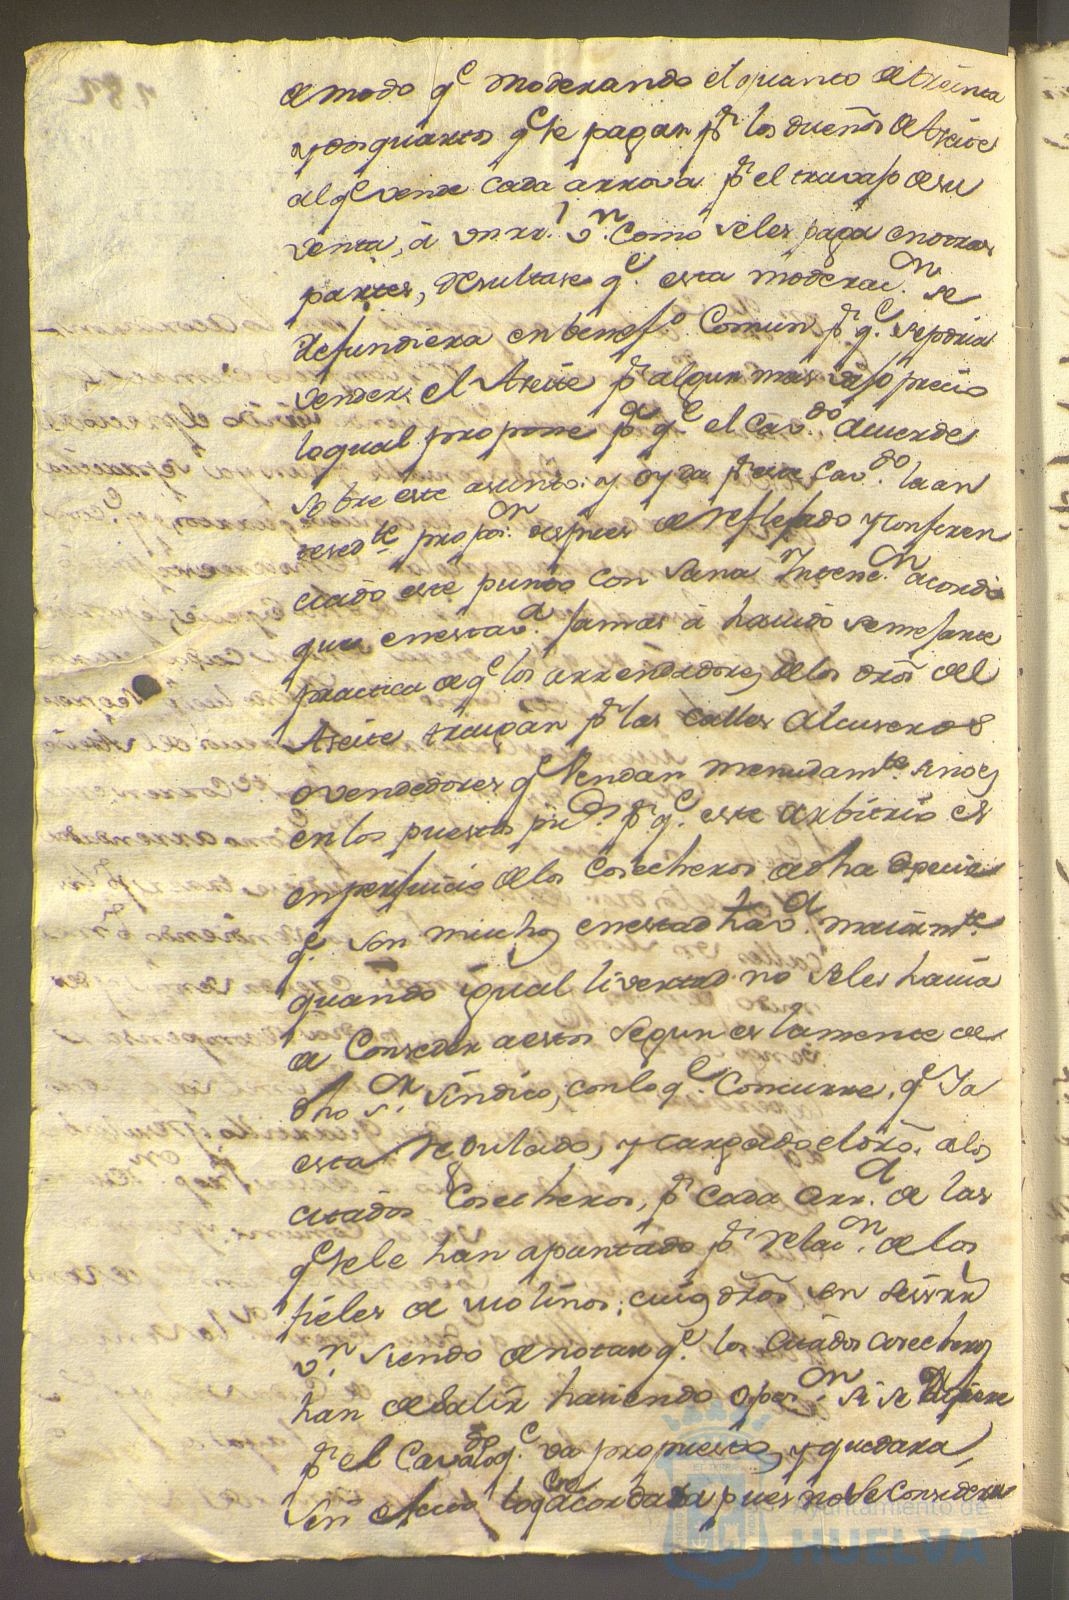 de modo q.e moderando el quanto de treinta
y dos quartos q.e se pagan p.r los dueños de Aseite
al q.e vende cada arrova p.r el travajo de su
venta, à un rr.l v.n como se les paga en otras
partes, resultase q.e esta moderac.on se
refundiera en benef.o comun p.r q.e se podria
vender el Aseite p.r algun mas vajo precio
lo qual propone p.a q.e el Cav.do acuerde
sobre este asunto: y oyda p.r este Cav.do la an
tesed.te propos.on despues de reflejado y conferen
ciado este punto con sana Intenc.on acordò
que en esta v.a jamas à havido semejante
practica de q.e los arrendadores de los dros del
Aseite traigan p.r las calles Alcuseros
o vendedores q.e vendan menudam.te sino es
en los puestos pu.cos p.r q.e este arbitrio es
en perjuicio de los Cosecheros de dha especie
q.e son muchos en esta v.a maiorm.te
quando igual livertad no se les havia
de Conseder a estos segun es la mente de
dho s.or Sindico, con lo q.e concurre, q.e Ya
esta regulado, y cargado el dro. a los
citados Cosecheros, p.r cada arr.a de las
q.e se le han apuntado p.r relac.on de los
fieles de molinos; cuios dros son seis rr
v.n siendo de notar q.e los citados cosecheros
han de salir hasiendo opos.on si se difiere
p.r el Cavdo a lo q.e va propuesto, y quedara
sin efecto lo q.e acordara pues no se considera
Ayuntamiento de
HUELVA